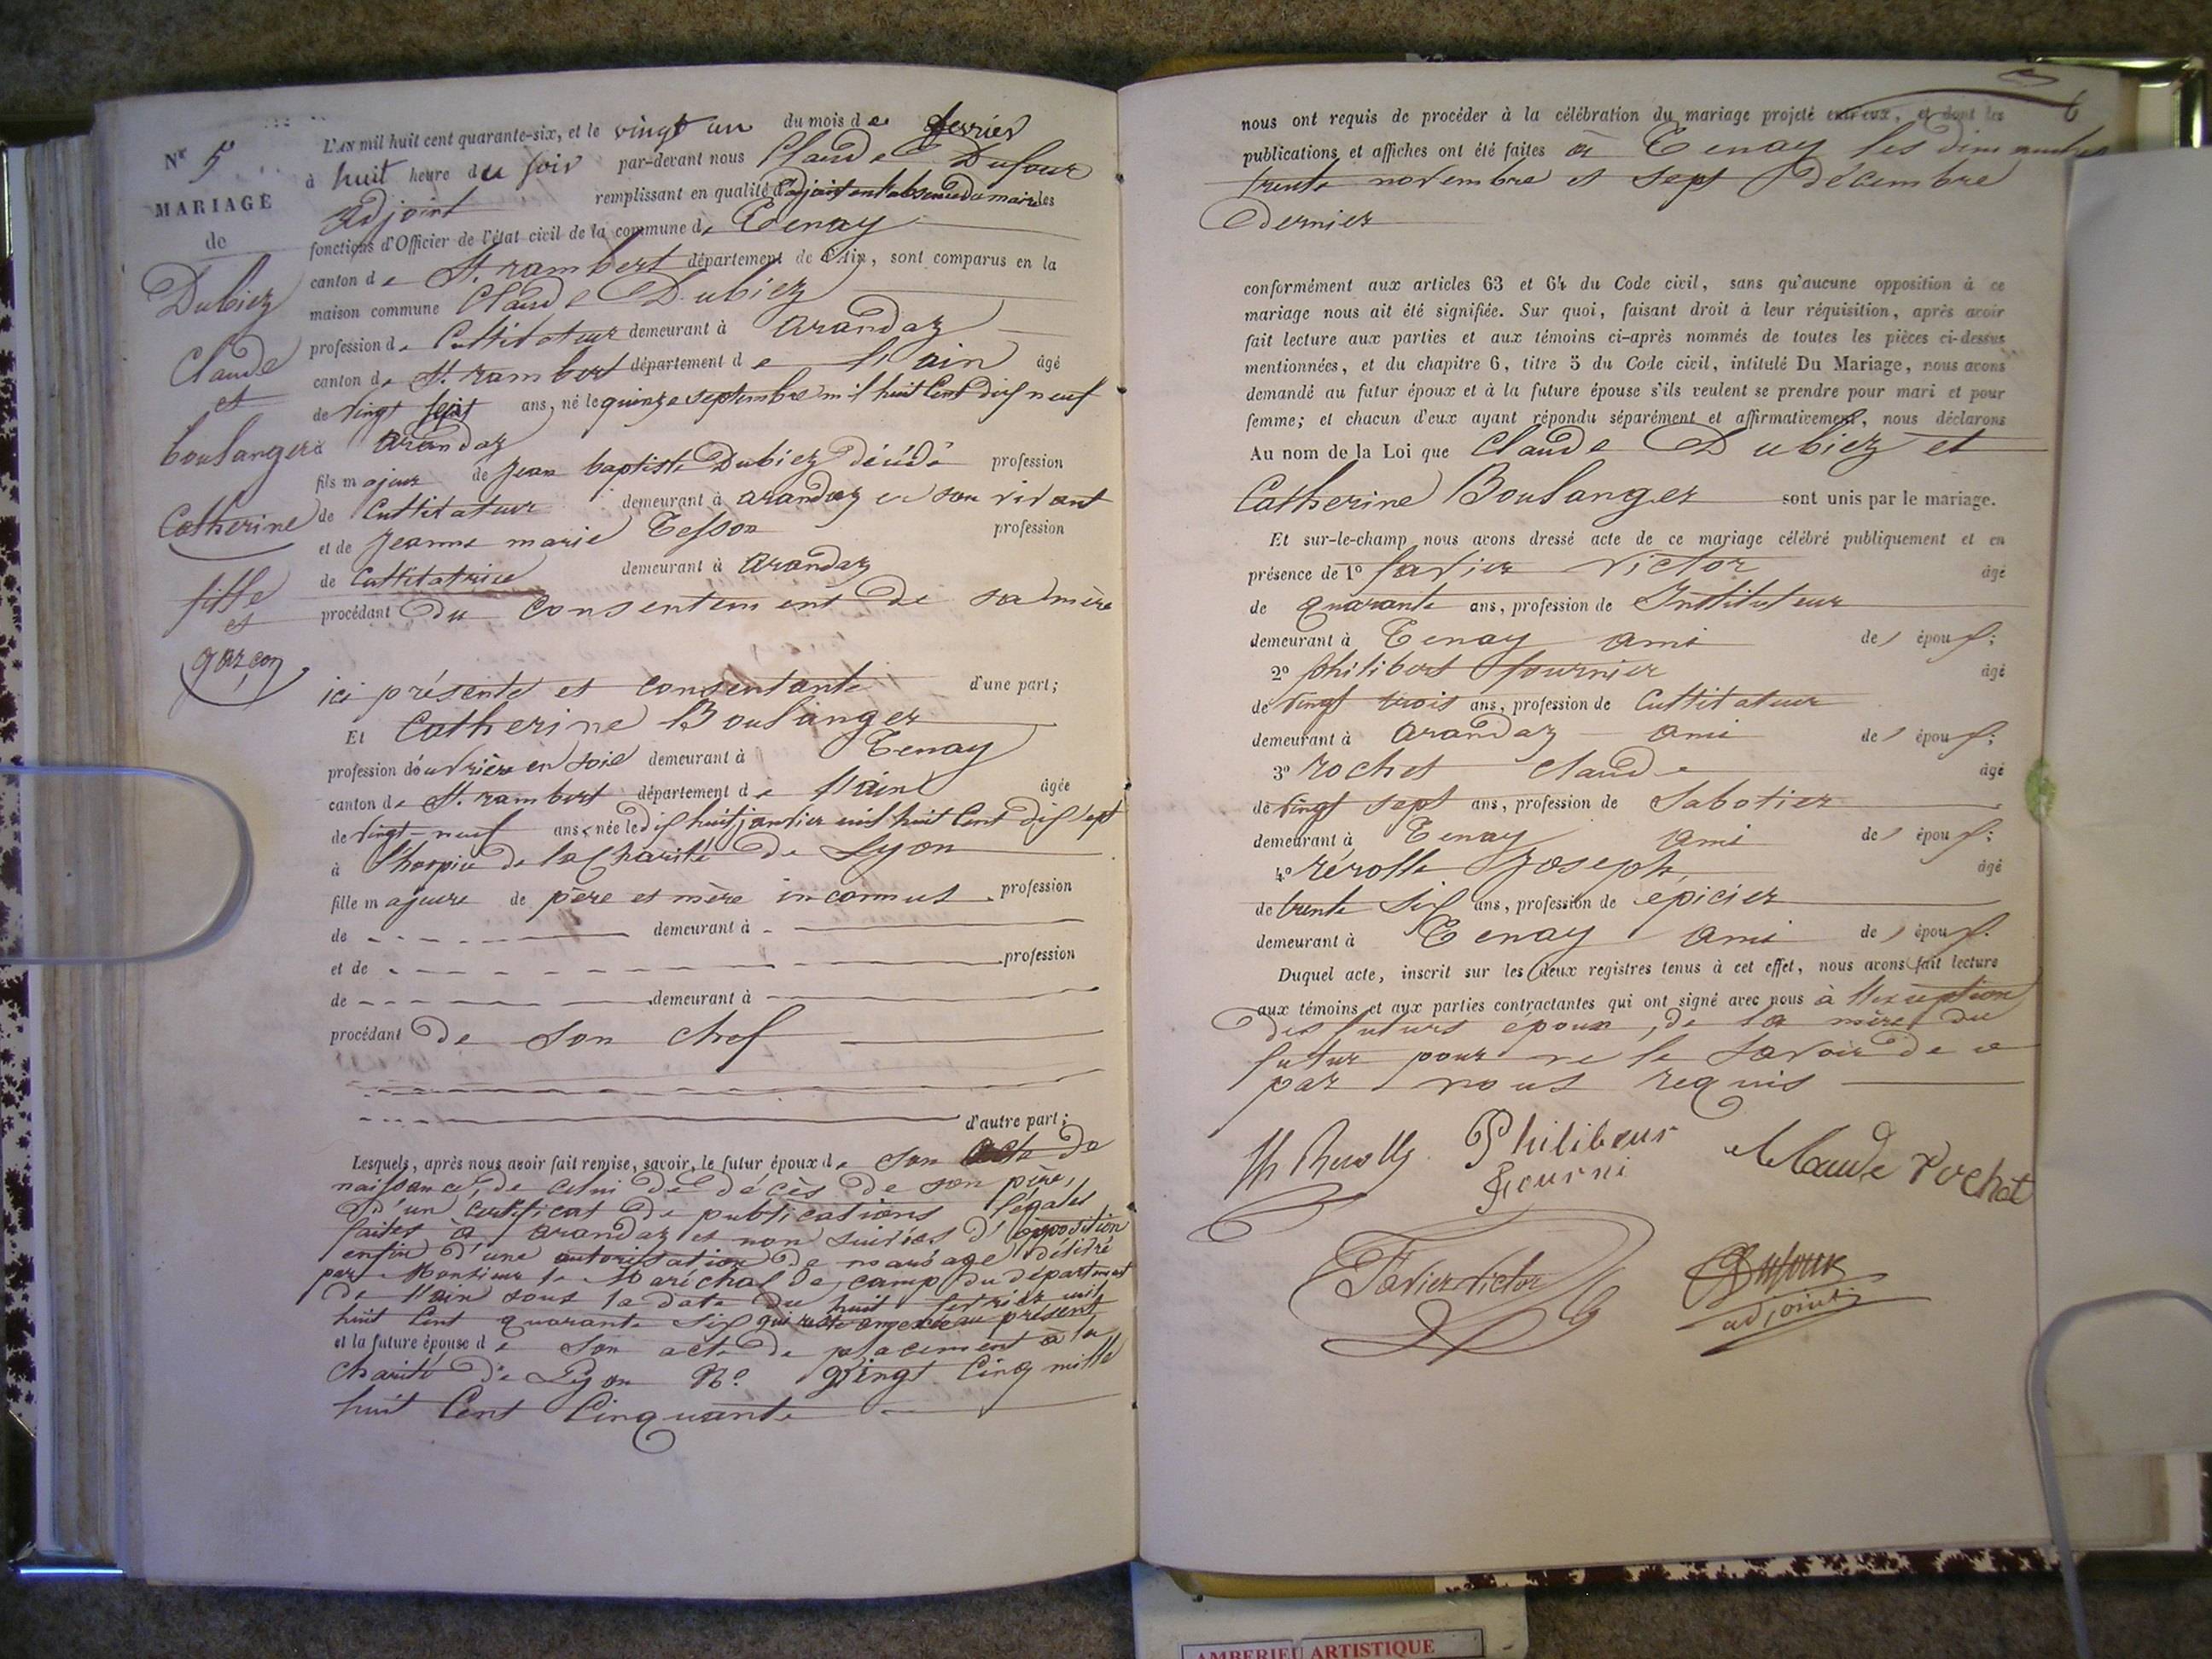 Nº 5
MARIAGE
de
Dubiez
Claude
et
boulanger
Catherine
fille
et
garçon
L'AN mil huit cent quarante-six, et le vingt un du mois de fevrier
à huit heure du soir par-devant nous Claude Dufour
adjoint remplissant en qualité d'adjoint en l'absence du maire les
fonctions d'Officier de l'état civil de la commune de Tenay
canton de St. rambert département de l'Ain, sont comparus en la
maison commune Claude Dubiez
profession de Cultivateur demeurant à arandaz
canton de St. rambert département de l'ain âgé
de vingt sept ans, né le quinze septembre mil huit Cent dix neuf
à arandaz
fils majeur de jean baptiste Dubiez décédé profession
de Cultivateur demeurant à arandaz en son vivant
et de jeanne marie Tesson profession
de Cultivatrice demeurant à arandaz
procédant du consentement de sa mère
ici présente et consentante d'une part;
Et Catherine Boulanger
profession d'ouvrière en soie demeurant à Tenay
canton de St. rambert département de l'ain âgée
de vingt-neuf ans, née le dix huit janvier mil huit Cent dix sept
à l'hospice de la Charité de Lyon
fille majeure de père et mère inconnus profession
de demeurant à
et de profession
de demeurant à
procédant de son chef
d'autre part;
Lesquels, après nous avoir fait remise, savoir, le futur époux de son acte de
naissance, de celui de décès de son père,
d'un certificat de publications légales
faites à arandaz et non suivies d'opposition
enfin d'une autorisation de mariage délivré
par Monsieur le Maréchal de camp du département
de l'ain sous la date du huit fevrier mil
huit Cent quarante six qui reste annexée au présent
et la future épouse de son acte de placement à la
charité de Lyon Nº vingt Cinq mille
huit Cent Cinquante
6
nous ont requis de procéder à la célébration du mariage projeté entr'eux, et dont les
publications et affiches ont été faites à Tenay les dimanches
trente novembre et sept décembre
dernier
conformément aux articles 63 et 64 du Code civil, sans qu'aucune opposition à ce
mariage nous ait été signifiée. Sur quoi, faisant droit à leur réquisition, après avoir
fait lecture aux parties et aux témoins ci-après nommés de toutes les pièces ci-dessus
mentionnées, et du chapitre 6, titre 5 du Code civil, intitulé Du Mariage, nous avons
demandé au futur époux et à la future épouse s'ils veulent se prendre pour mari et pour
femme; et chacun d'eux ayant répondu séparément et affirmativement, nous déclarons
Au nom de la Loi que Claude Dubiez et
Catherine Boulanger sont unis par le mariage.
Et sur-le-champ nous avons dressé acte de ce mariage célébré publiquement et en
présence de 1º favier victor âgé
de quarante ans, profession de Instituteur
demeurant à Tenay ami de époux;
2º philibert fournier âgé
de vingt trois ans, profession de Cultivateur
demeurant à arandaz ami de époux;
3º rochet claude âgé
de vingt sept ans, profession de Sabotier
demeurant à Tenay ami de époux;
4º rérolle Joseph âgé
de trente six ans, profession de épicier
demeurant à Tenay ami de époux.
Duquel acte, inscrit sur les deux registres tenus à cet effet, nous avons fait lecture
aux témoins et aux parties contractantes qui ont signé avec nous à l'exception
des futurs époux, de la mère du
futur pour ne le savoir de ce
par nous requis
Philibeur
Fourni
Claude Rochet
Favier victor
Dufour
adjoint
AMBERIEU ARTISTIQUE